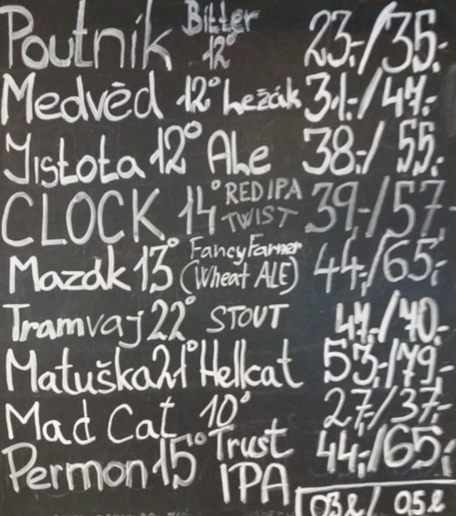 Poutník Bitter 12° 23,-/35,-
Medvěd 12° Ležák 31,-/47,-
Jistota 12° Ale 38,-/55,-
CLOCK 14° RED IPA TWIST 39,-/57,-
Mazák 13° Fancy Farmer (Wheat ALE) 44,-/65,-
Tramvaj 22° STOUT /70,-
Matuška 21° Hellcat 53,-/79,-
Mad Cat 10° 27,-/37,-
Permon 15° Trust IPA 44,-/65,-
0,3 l / 0,5 l